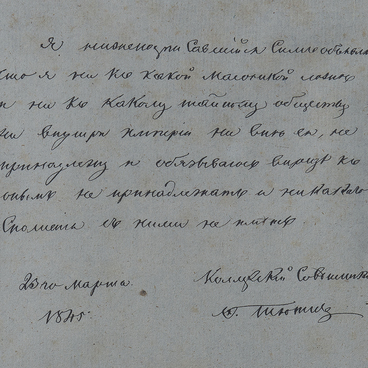 Я нижеподписавшийся симъ объявляю
что я ни къ какой Масонской ложѣ
и ни къ какому тайному обществу
ни внутри имперіи ни внѣ ея, не
принадлежу и обязываюсь впредь къ
онымъ не принадлежать и никакого
сношенія съ ними не имѣть
23го марта
1845.
Коллежскій Совѣтникъ
Ѳ. Тютчевъ